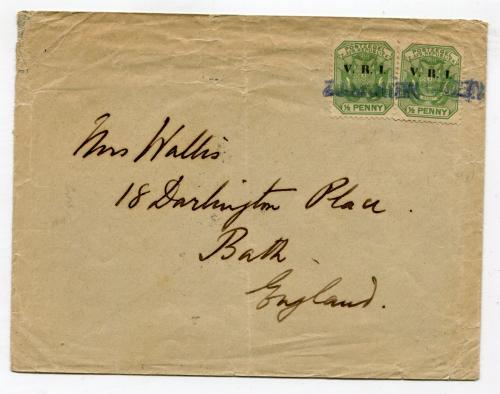 POSTZEGEL POSTZEGEL
V. R. I. V. R. I.
½ PENNY ½ PENNY
Mrs Wallis
18 Darlington Place.
Bath
England.